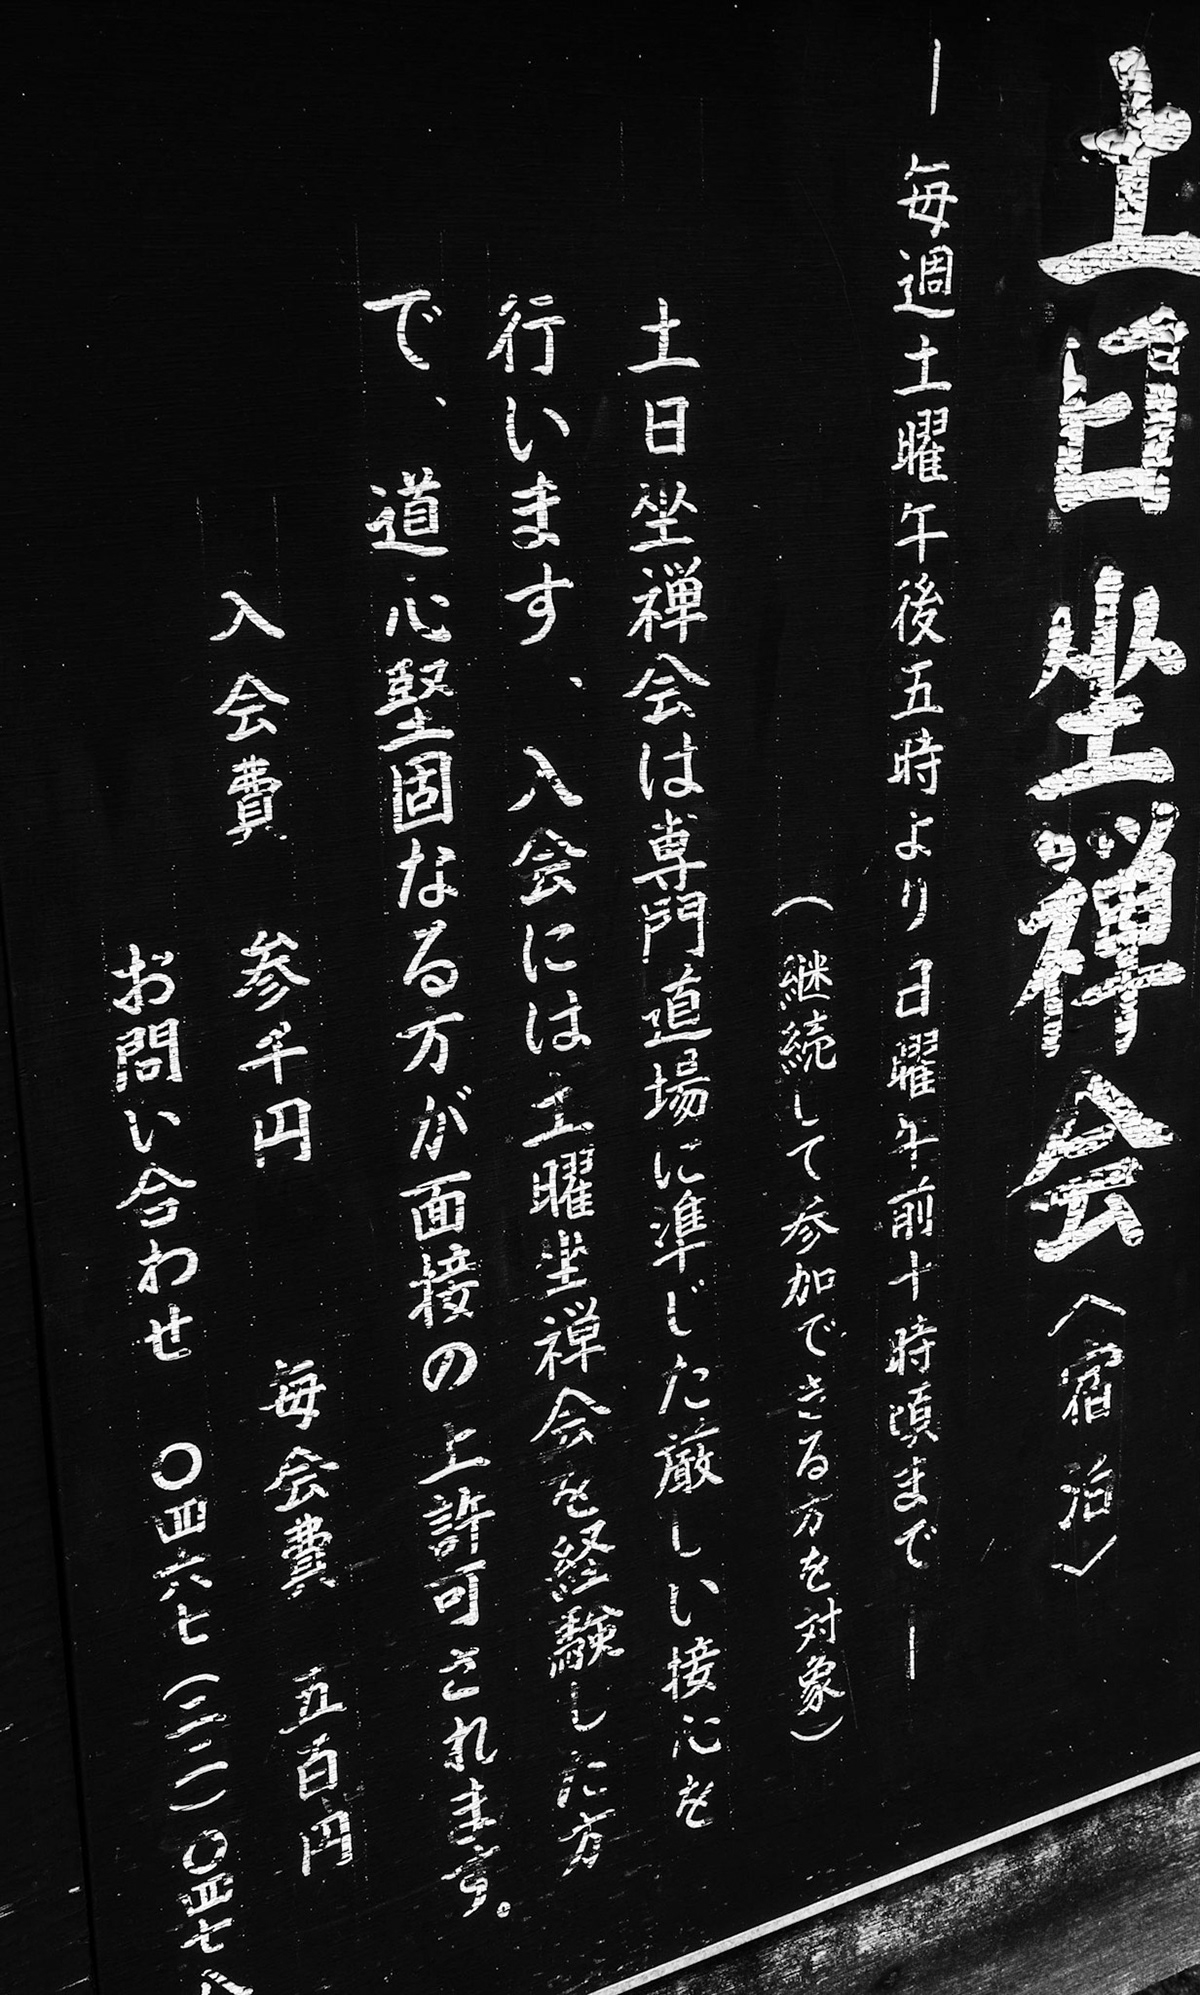 土日坐禅会〈宿泊〉
― 毎週土曜午後五時より日曜午前十時頃まで ―
（継続して参加できる方を対象）
土日坐禅会は専門道場に準じた厳しい接心を
行います、入会には土曜坐禅会を経験した方
で、道心堅固なる方が面接の上許可されます。
入会費 参千円 毎会費 五百円
お問い合わせ 〇四六七（二二）〇四七八